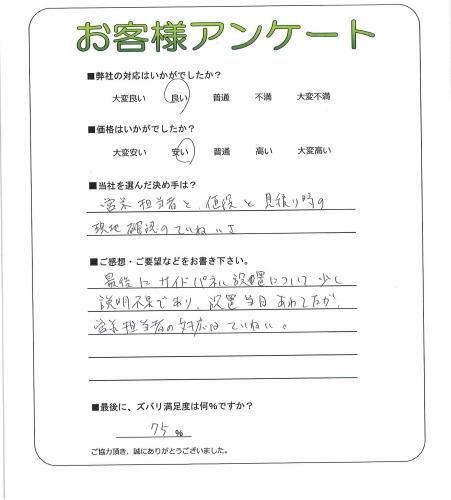 お客様アンケート
■弊社の対応はいかがでしたか？
大変良い 良い 普通 不満 大変不満
■価格はいかがでしたか？
大変安い 安い 普通 高い 大変高い
■当社を選んだ決め手は？
営業担当者と、値段と見積り時の
現地確認のていねいさ
■ご感想・ご要望などをお書き下さい。
最後にサイドパネル設置について少し
説明不足であり、設置当日あわてたが、
営業担当者の対応はていねい。
■最後に、ズバリ満足度は何%ですか？
75 %
ご協力頂き、誠にありがとうございました。